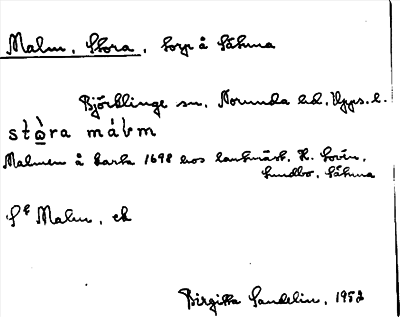 Malm, Stora, torp å Sätuna
Björklinge sn, Norunda hd, Upps. l.
stⱥ̀ra mál̥m
Malmen å karta 1698 hos lantmät. H. Lovén,
Lundbo, Sätuna
Se Malm, ek
Birgitta Sandelin, 1952